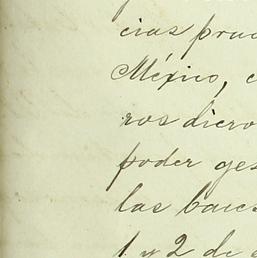 cias prud
México, c
ros diero
poder ges
las bases
1 y 2 de